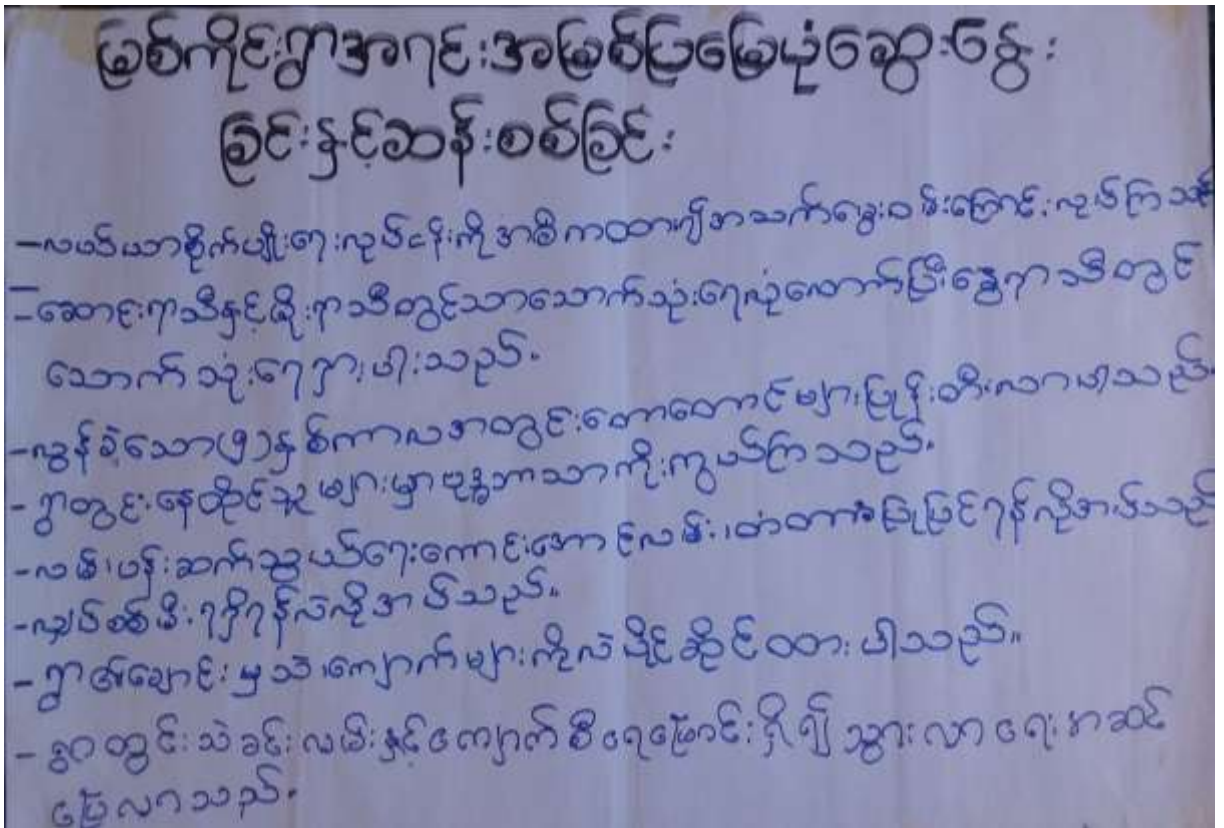 မြစ်ကိုင်းရွာအရင်းအမြစ်ပြမြေပုံဆွေးနွေး
ခြင်းနှင့်ဆန်းစစ်ခြင်း
-လယ်ယာစိုက်ပျိုးရေးလုပ်ငန်းကိုအဓိကထား၍အသက်မွေးဝမ်းကြောင်းလုပ်ကြသည်
-ဆောင်းရာသီနှင့်မိုးရာသီတွင်သာသောက်သုံးရေလုံလောက်ပြီးနွေရာသီတွင်
သောက်သုံးရေရှားပါးသည်။
-လွန်ခဲ့သော(၅)နှစ်ကာလအတွင်းတောတောင်များပြုန်းတီးလာပါသည်။
-ရွာတွင်းနေထိုင်သူများမှာဗုဒ္ဓဘာသာကိုးကွယ်ကြသည်။
-လမ်းပန်းဆက်သွယ်ရေးကောင်းအောင်လမ်း၊တံတားပြုပြင်ရန်လိုအပ်သည်
-လျှပ်စစ်မီးရရှိရန်လဲလိုအပ်သည်။
-ရွာ၏ချောင်းမှသဲ၊ကျောက်များကိုလဲပိုင်ဆိုင်ထားပါသည်။
-ရွာတွင်းသဲခင်းလမ်းနှင့်ကျောက်စီရေမြောင်းရှိ၍သွားလာရေးအဆင်
ပြေလာသည်။